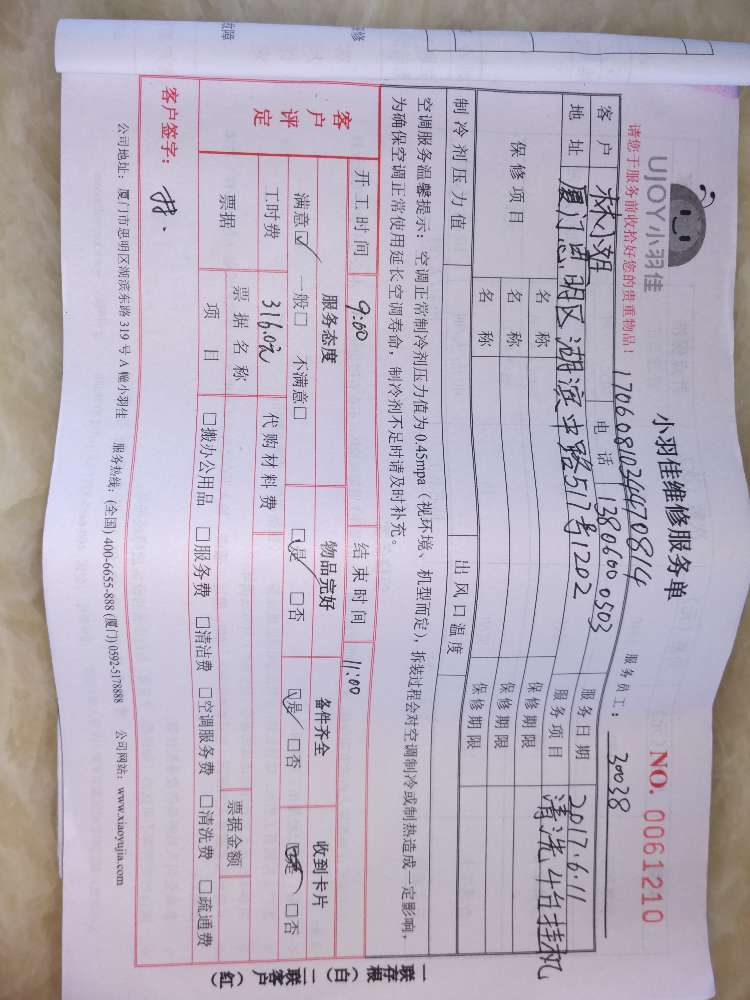 UJOY小羽佳
小羽佳维修服务单
NO. 0061210
请您于服务前收拾好您的贵重物品！
17060810234470814
服务员工： 30038
客户 林小姐 电话 13806000503 服务日期 2017.6.11
地址 厦门思明区湖滨中路517号1202 服务项目 清洗4台挂机
保修项目 名称 保修期限
名称 保修期限
名称 保修期限
制冷剂压力值 出风口温度
空调服务温馨提示：空调正常制冷剂压力值为0.45mpa（视环境、机型而定），拆装过程会对空调制冷或制热造成一定影响，
为确保空调正常使用延长空调寿命，制冷剂不足时请及时补充。
开工时间 9:00 结束时间 11:00
客户评定
服务态度 物品完好 备件齐全 收到卡片
满意☑ 一般□ 不满意□ ☑是 □否 ☑是 □否 ☑是 □否
工时费 316.0元 代购材料费
票据 票据名称 票据金额
项目 □搬办公用品 □服务费 □清洁费 □空调服务费 □清洗费 □疏通费
客户签字：
公司地址：厦门市思明区湖滨东路319号A幢小羽佳 服务热线：(全国) 400-6655-888 (厦门) 0592-5178888 公司网站：www.xiaoyujia.com
一联存根（白） 二联客户（红）